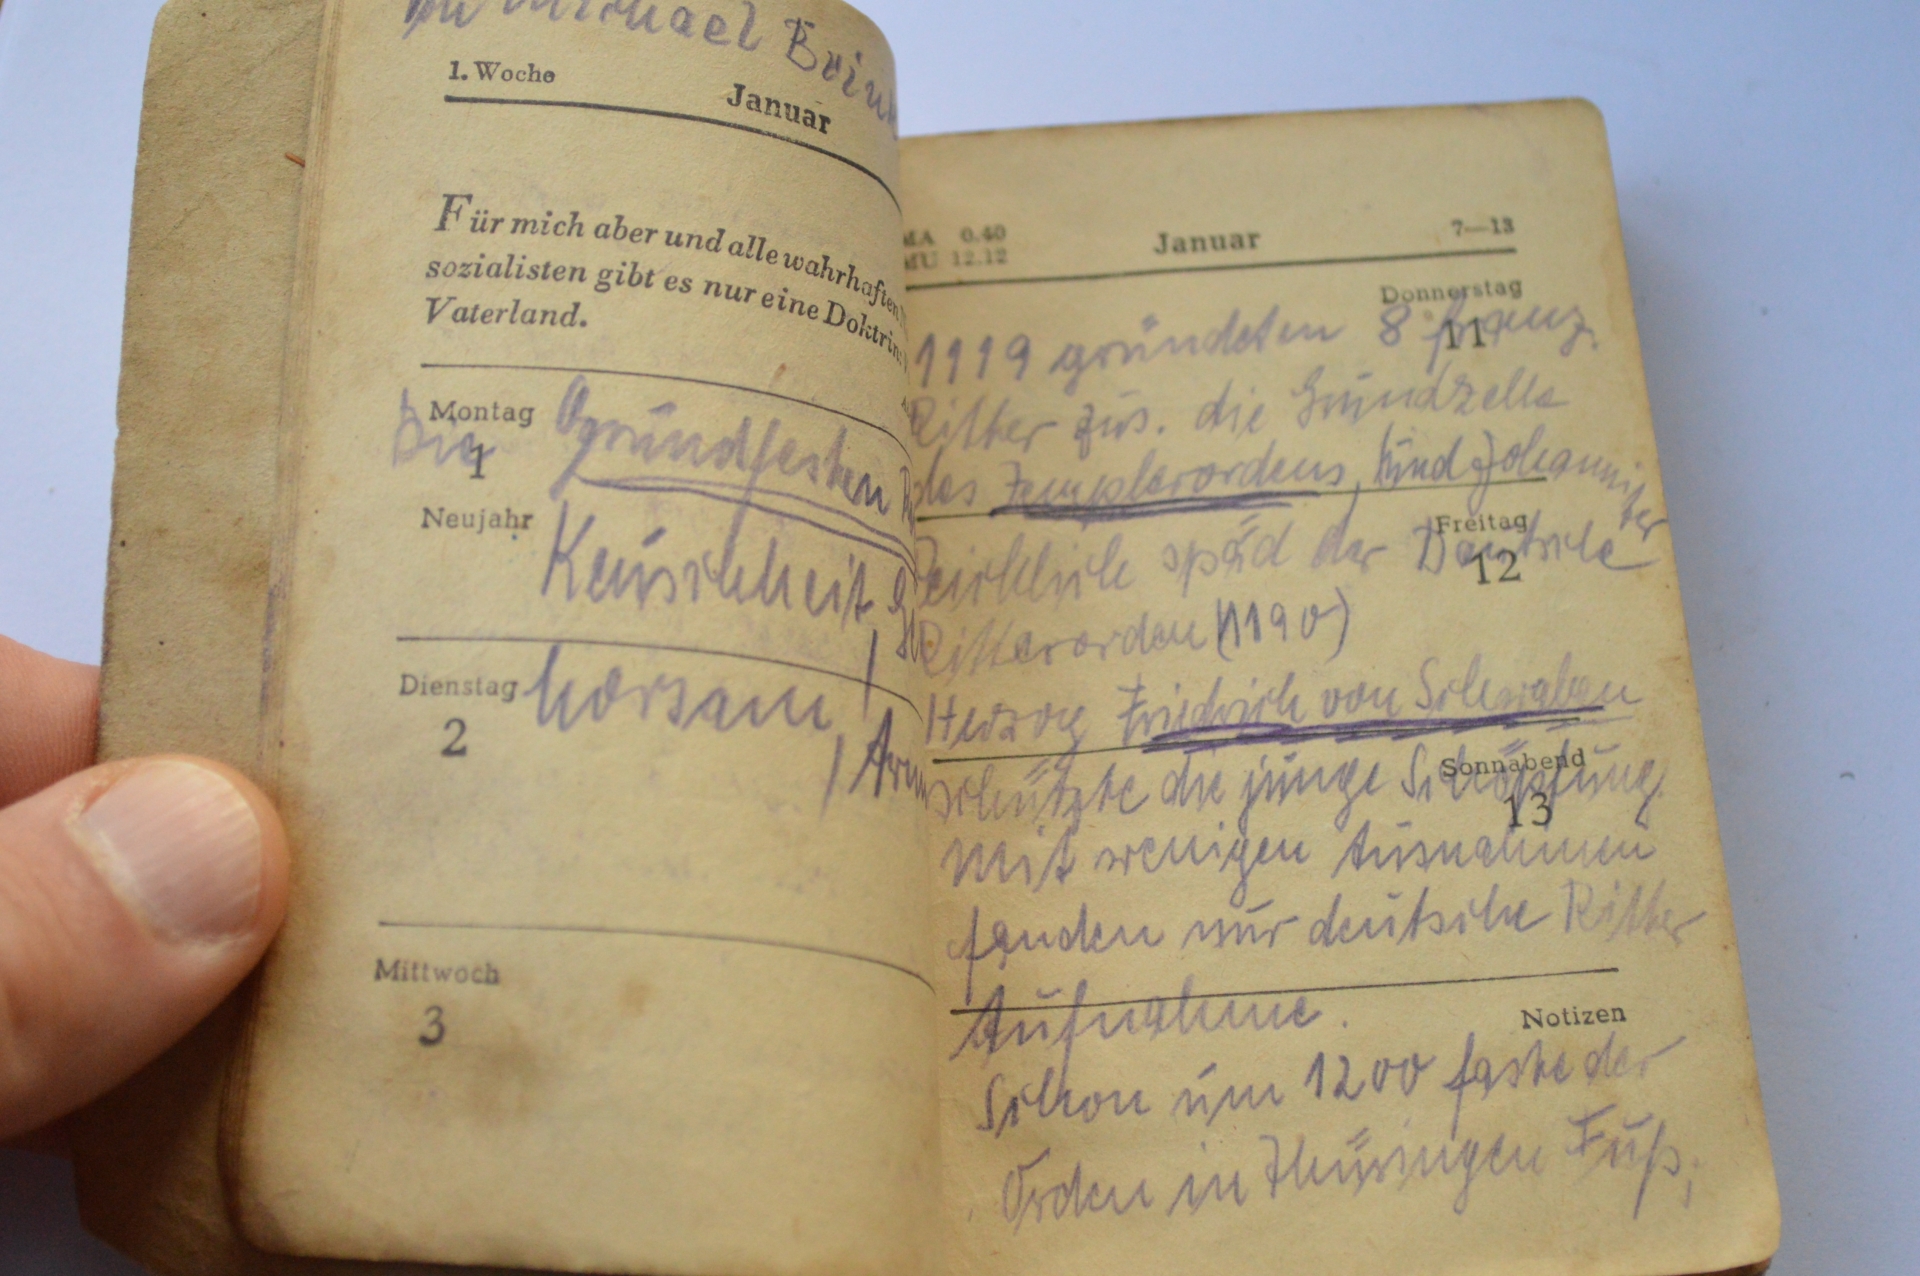 Michael Brink
1. Woche
Januar
Für mich aber und alle wahrhaften
sozialisten gibt es nur eine Doktrin:
Vaterland.
Montag
1
Neujahr
Die Grundfesten
Keuschheit
horsam
Dienstag
2
Arm
Mittwoch
3
MA 0.40
MU 12.12
Januar
7—13
Donnerstag
11
1119 gründeten 8 franz.
Ritter zus. die Grundzelle
des Templerordens, und Johanniter
Freitag
12
spät der Deutsche
Ritterorden (1190)
Herzog Friedrich von Schwaben
Sonnabend
13
schützte die junge Schöpfung
Mit wenigen Ausnahmen
fanden nur deutsche Ritter
Aufnahme.
Notizen
Schon um 1200 faste der
Orden in Thüringen Fuß;